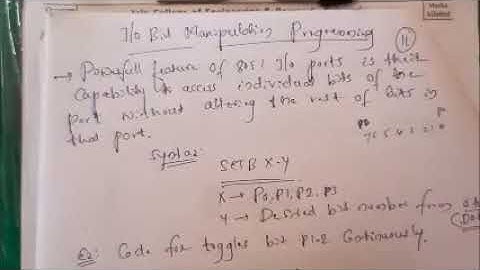 College of Engineering &
Marks Allotted
I/o Bit Manipulation Programming
11
→ Powerfull feature of 8051 I/o ports is their
capability to access individual bits of the
port without altering the rest of bits in
that port.
7 6 5 4 3 2 1 0
Syntax:
SETB X-Y
X → P0, P1, P2, P3
Y → Desired bit number from
Ex: Code for toggles bit P1.2 Continuously.